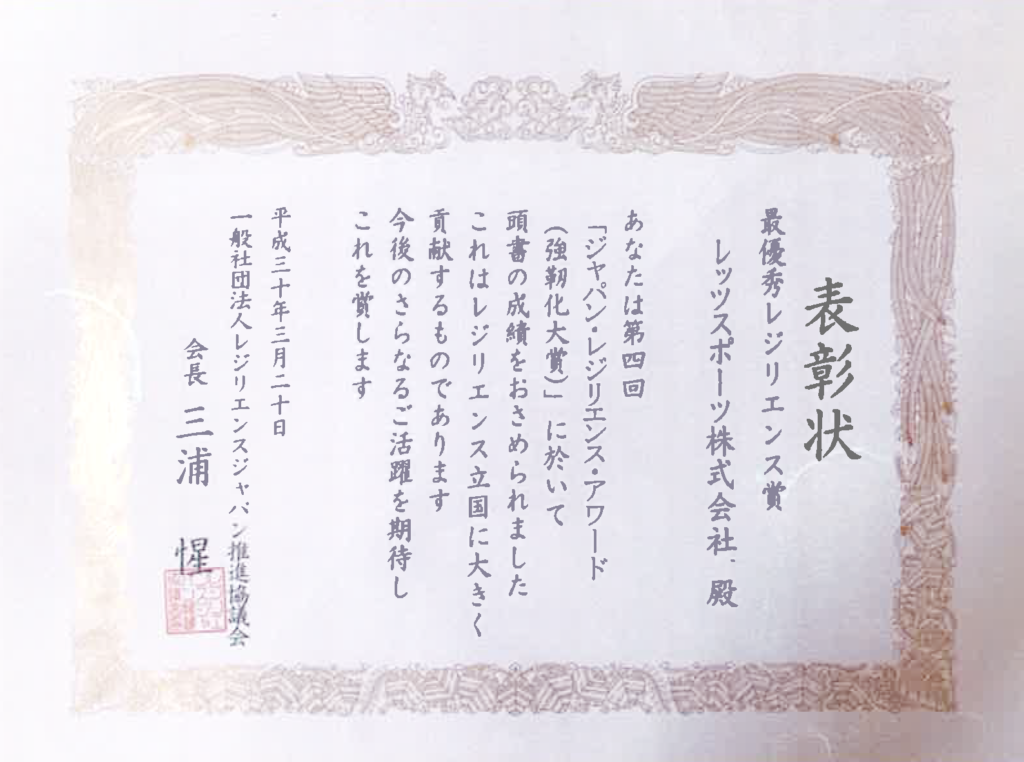 表彰状
最優秀レジリエンス賞
レッツスポーツ株式会社 殿
あなたは第四回
「ジャパン・レジリエンス・アワード
(強靭化大賞)」に於いて
頭書の成績をおさめられました
これはレジリエンス立国に大きく
貢献するものであります
今後のさらなるご活躍を期待し
これを賞します
平成三十年三月二十日
一般社団法人レジリエンスジャパン推進協議会
会長 三浦 惺